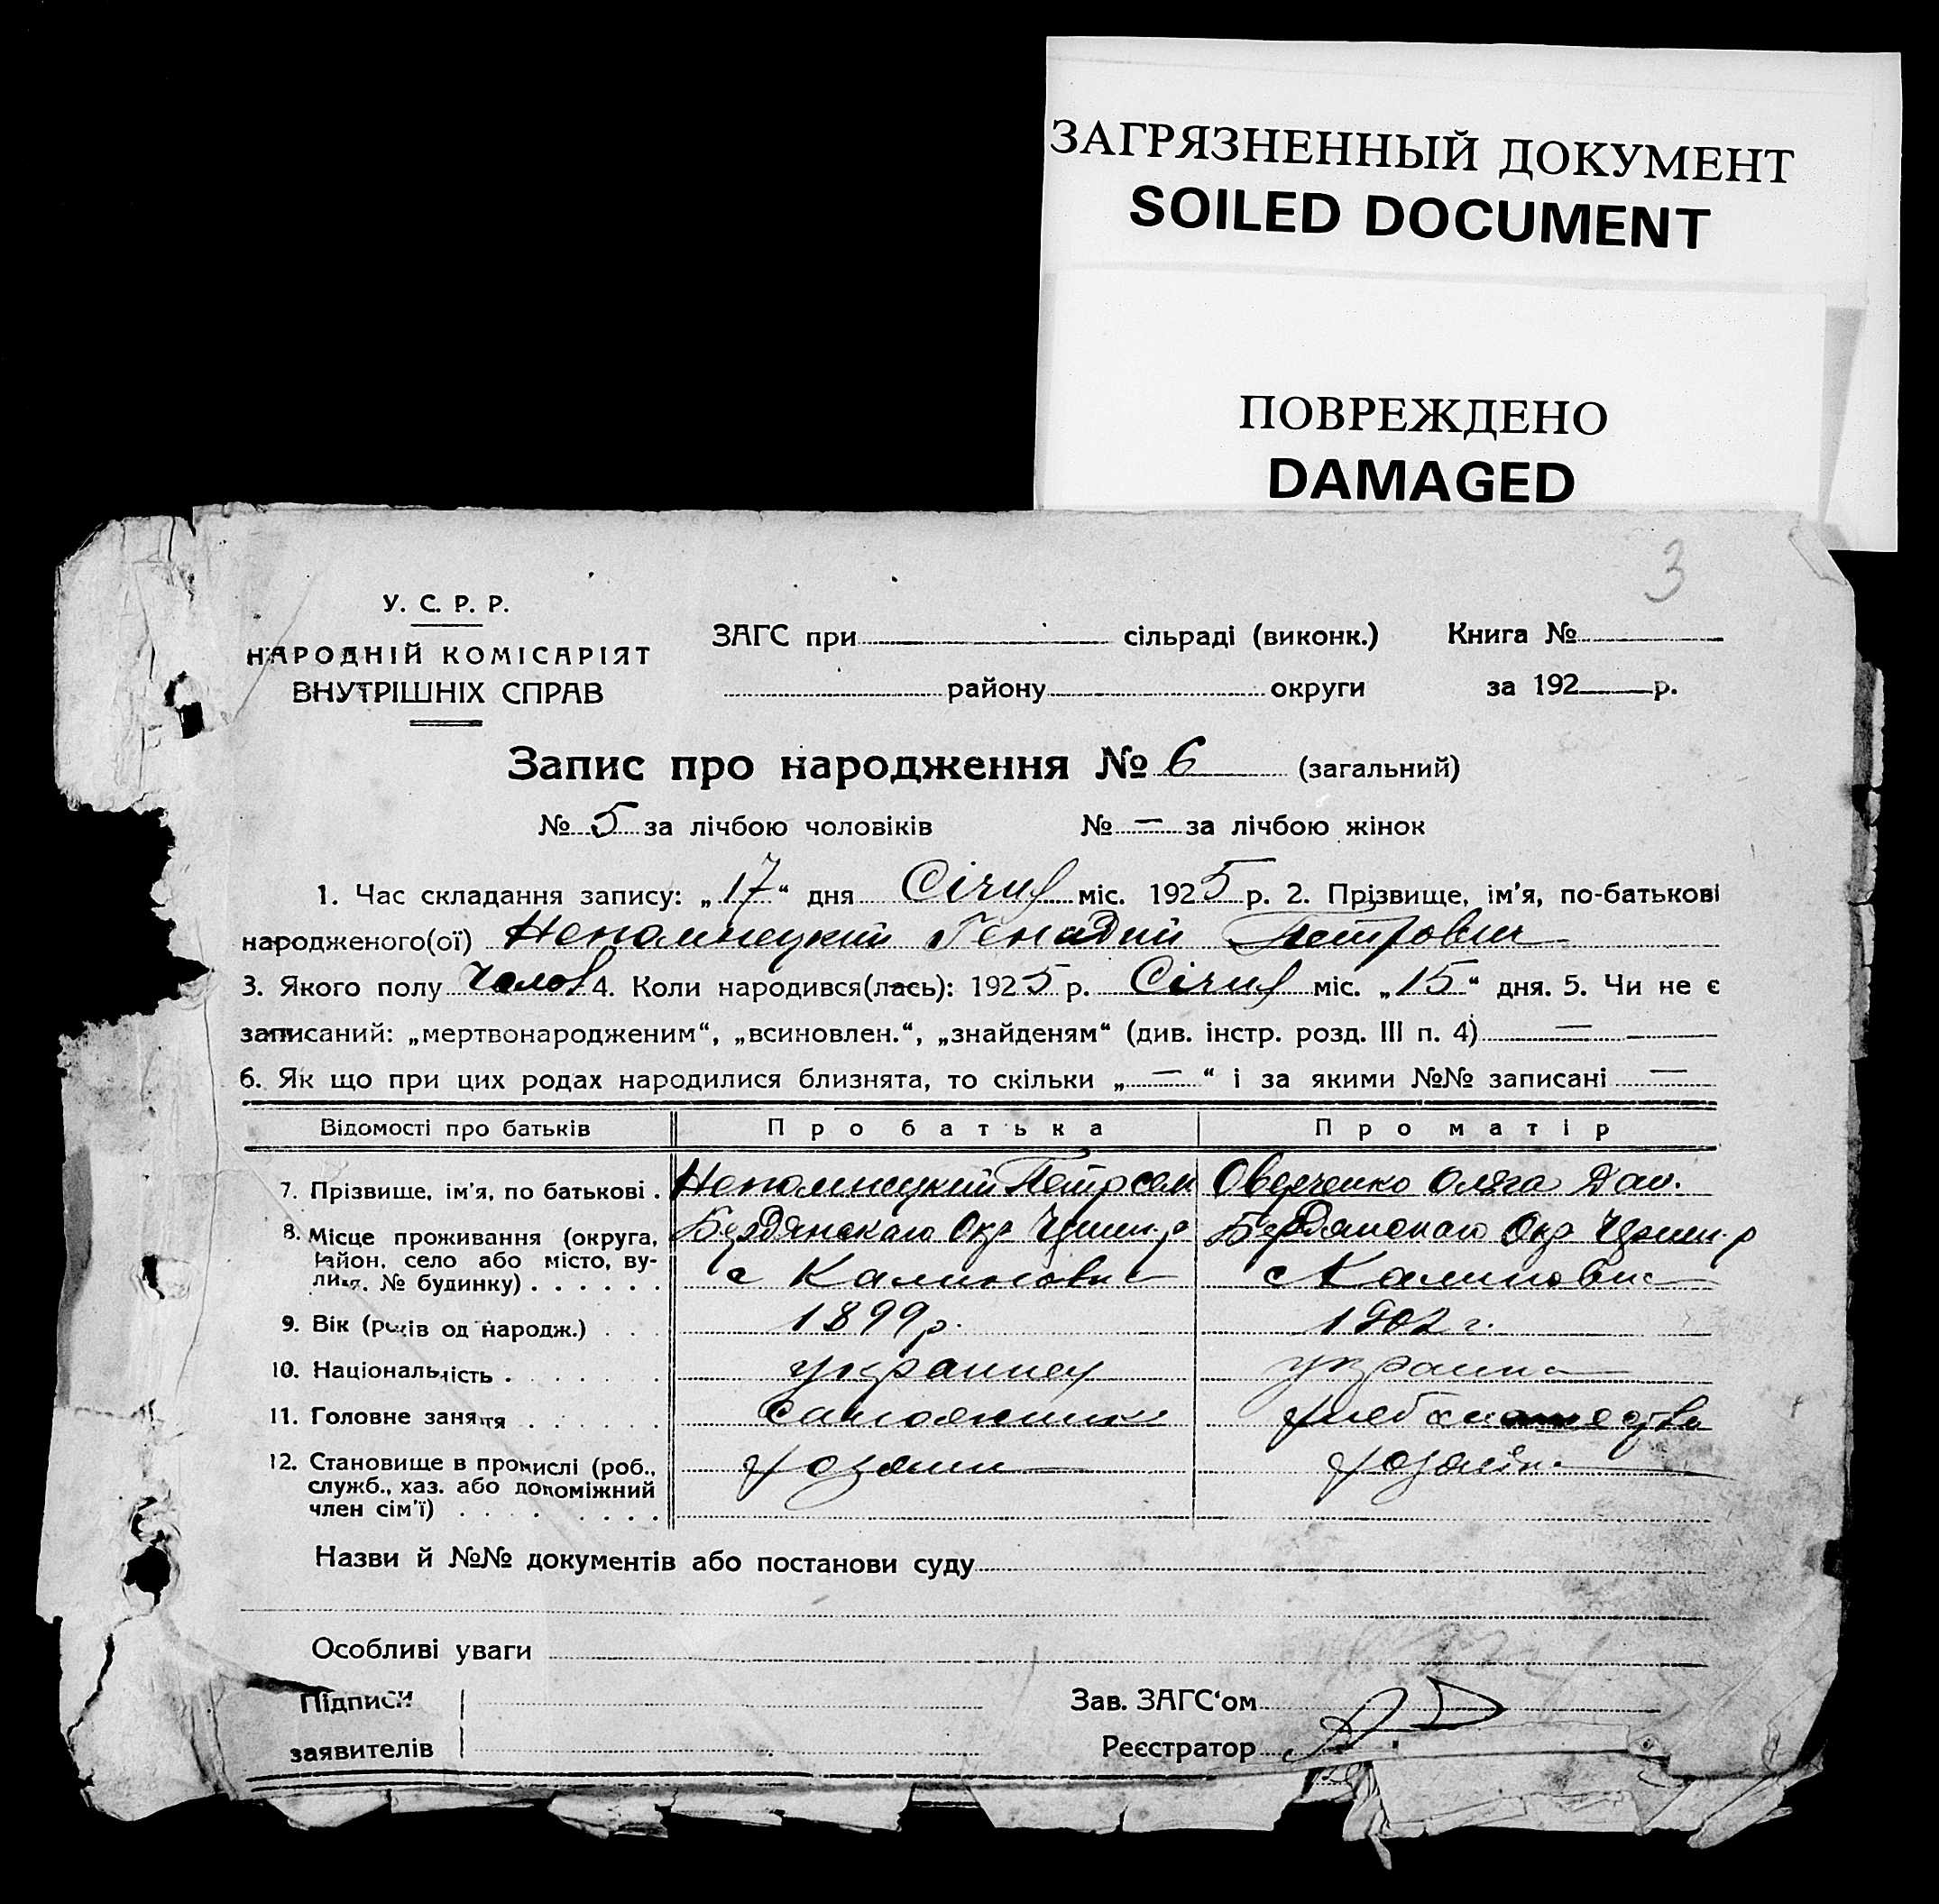 ЗАГРЯЗНЕННЫЙ ДОКУМЕНТ
SOILED DOCUMENT
ПОВРЕЖДЕНО
DAMAGED
3
У. С. Р. Р.
НАРОДНІЙ КОМІСАРІЯТ
ВНУТРІШНІХ СПРАВ
ЗАГС при сільраді (виконк.) Книга №
району округи за 192 р.
Запис про народження № 6 (загальний)
№ 5 за лічбою чоловіків № — за лічбою жінок
1. Час складання запису: „17“ дня Січня міс. 1925 р. 2. Прізвище, ім'я, по-батькові
народженого(ої) Непомнецкий Генадий Петрович
3. Якого полу Чолов 4. Коли народився(лась): 1925 р. Січня міс. „15“ дня. 5. Чи не є
записаний: „мертвонародженим“, „всиновлен.“, „знайденям“ (див. інстр. розд. III п. 4) —
6. Як що при цих родах народилися близнята, то скільки „—“ і за якими №№ записані —
Відомості про батьків Про батька Про матір
7. Прізвище, ім'я, по батькові . Непомнецкий Петр Сем Оверченко Ольга Дан.
8. Місце проживання (округа, район, село або місто, вулиця, № будинку) . . . . . .
Бердянскаго Окр р Бердянскаго Окр р
с Калиновка с Калиновка
9. Вік (років од народж.) . . . 1899 р. 1902 г.
10. Національність . . . . . . . украинец украинка
11. Головне заняття . . . . . . хлебопашество
12. Становище в промислі (роб., хозяин хозяйк.
служб., хаз. або допоміжний
член сім'ї) . . . . . . . . .
Назви й №№ документів або постанови суду
Особливі уваги
Підписи Зав. ЗАГС'ом
заявителів Реєстратор